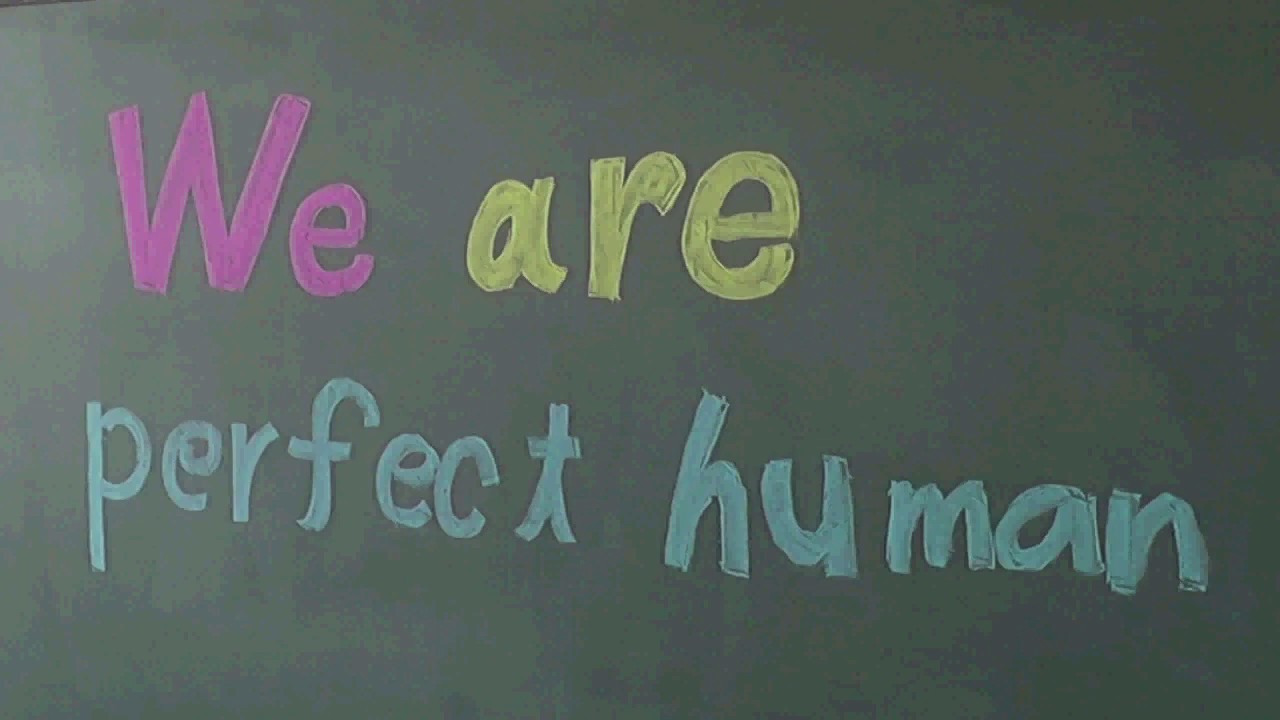 We are
perfect human